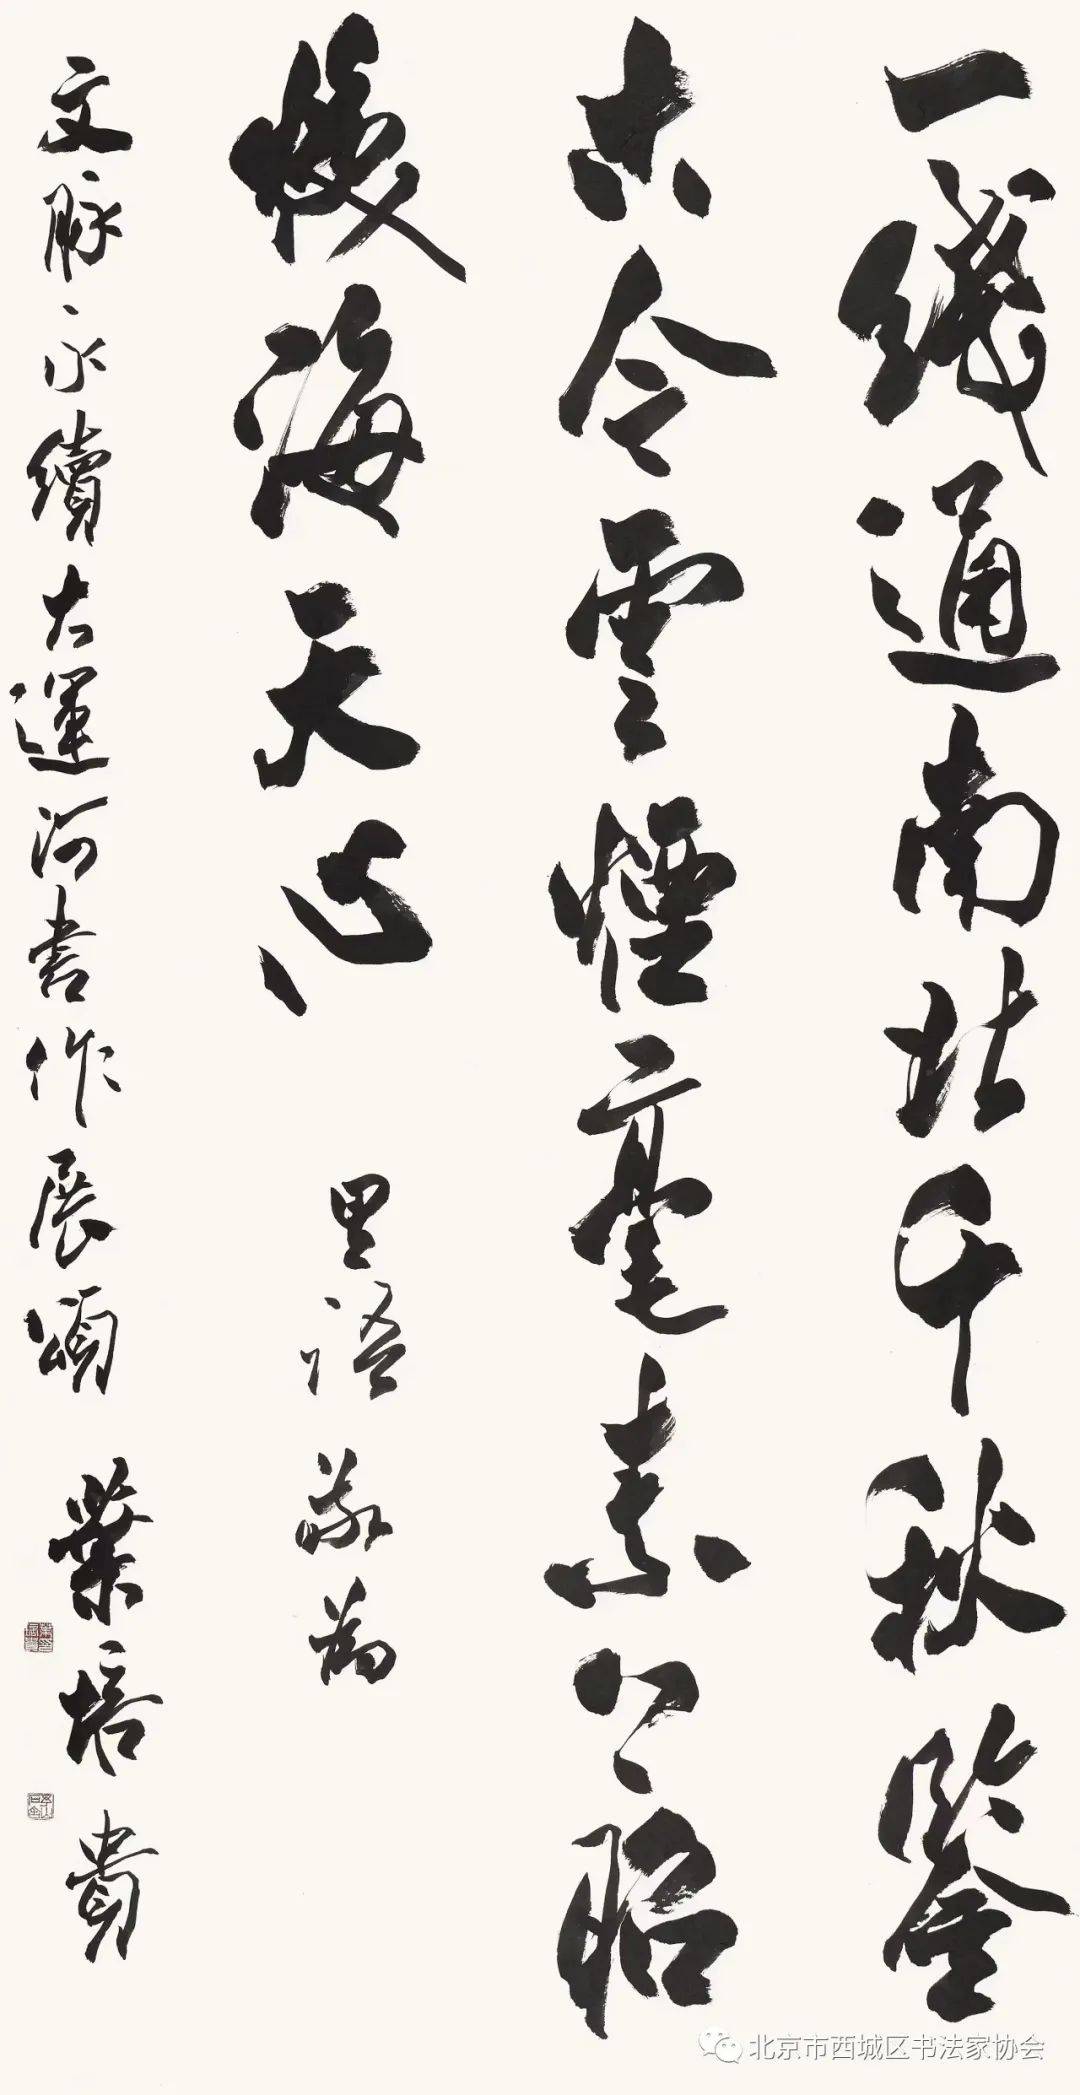 一綫通南北千秋鑒
古今雲煙毫素昭
海天心 里語敬為
文脉永續大運河書作展頌 葉培貴
北京市西城区书法家协会